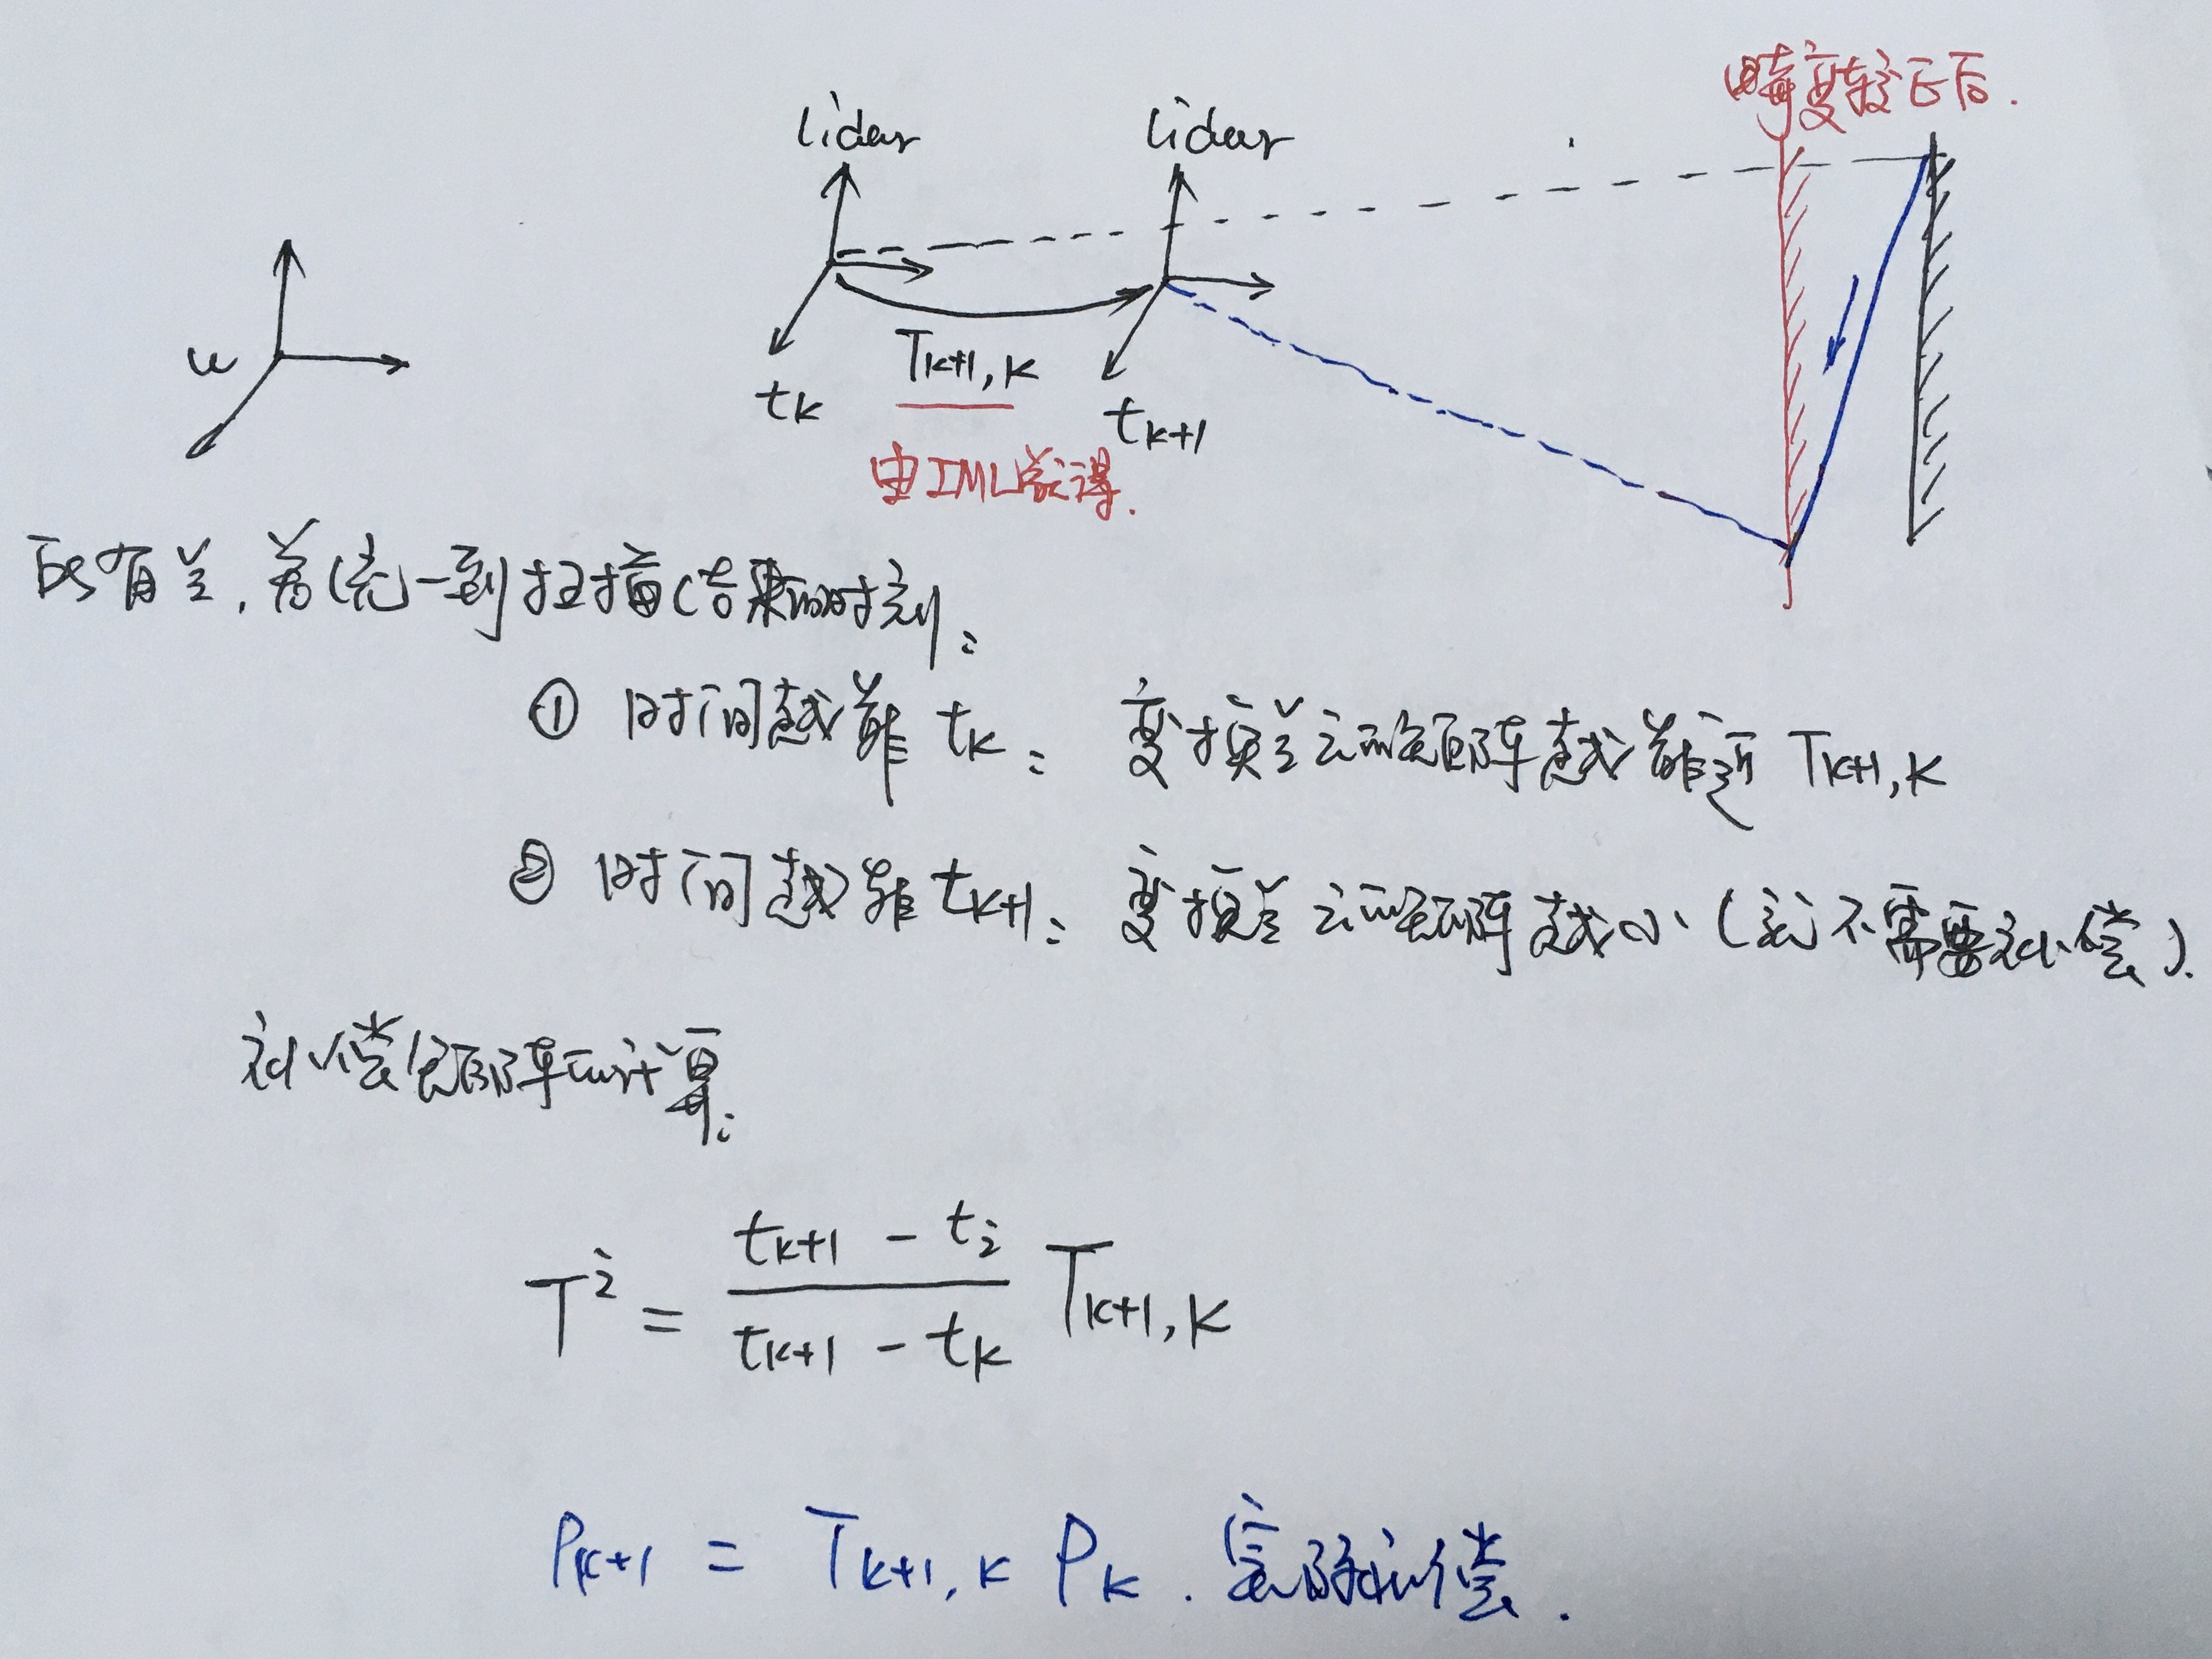 畸变校正后.
lidar lidar
w
T_{k+1,k}
t_k t_{k+1}
由IMU获得.
所有点,若统一到扫描结束的时刻:
① 时间越靠 t_k: 变换运动矩阵越靠近 T_{k+1,k}
② 时间越靠 t_{k+1}: 变换运动矩阵越小(说不需要补偿).
补偿矩阵的计算:
T^i = \frac{t_{k+1} - t_i}{t_{k+1} - t_k} T_{k+1,k}
P_{k+1} = T_{k+1,k} P_k . 实际补偿.